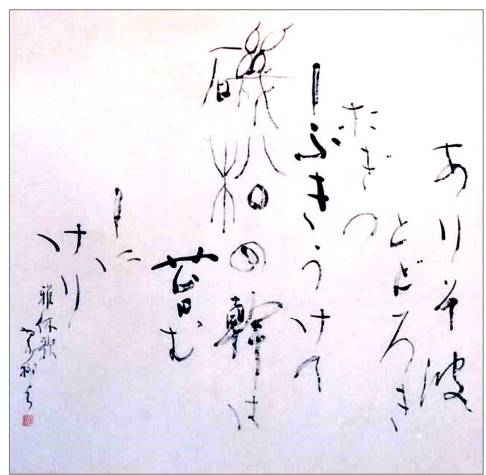 ありそ波
とどろき
たぎつ
しぶきうけて
磯松の幹は
苔む
しに
けり
雅休歌